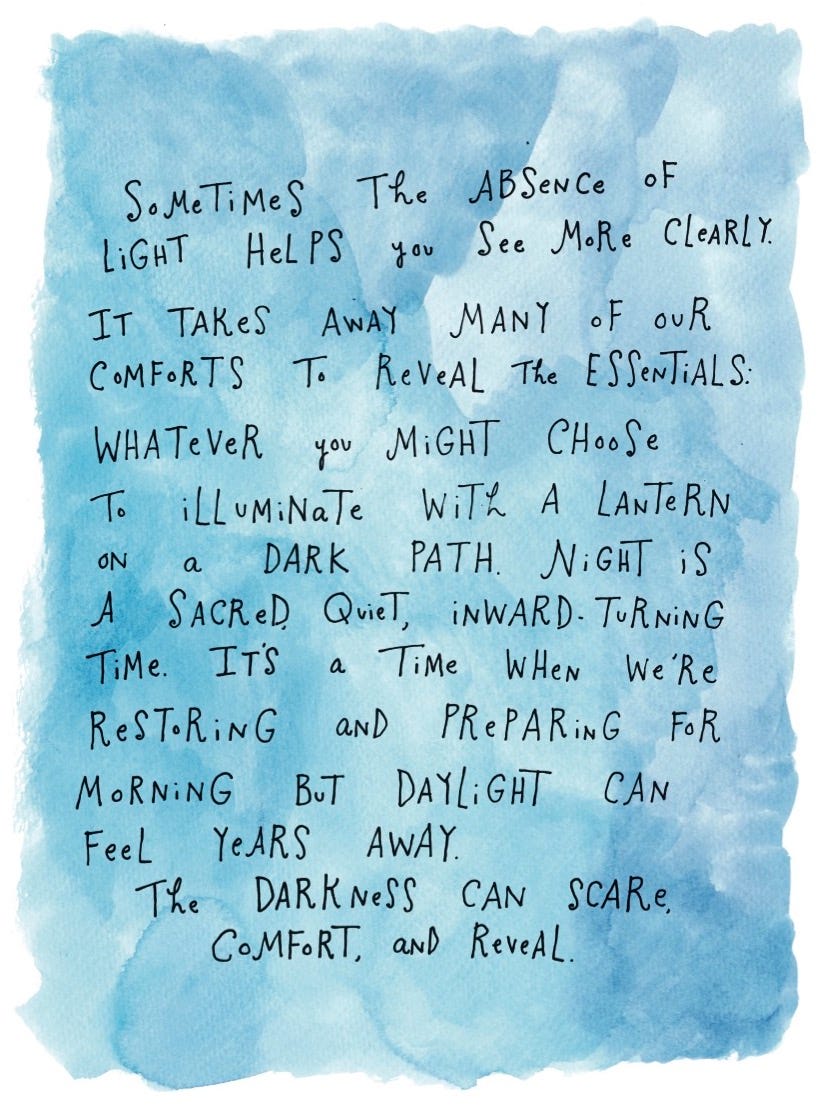 SoMeTiMeS The ABSeNCe oF
LiGHT HeLPS you See MoRe CLeARLY.
IT TAKeS AWAY MANY oF ouR
CoMFoRTS To ReVeAL The ESSeNTiALS:
WHATeVeR you MiGHT CHooSe
To iLLuMiNaTe WiTh A LANTeRN
oN a DARK PATH. NiGHT iS
A SACReD, QuieT, iNWARD-TuRNiNG
TiMe. IT'S a TiMe WHeN We'Re
ReSToRiNG aND PRePARiNG FoR
MoRNiNG BuT DAYLiGHT CAN
FeeL YeARS AWAY.
The DARKNeSS CAN SCARe,
CoMFoRT, aND ReveAL.